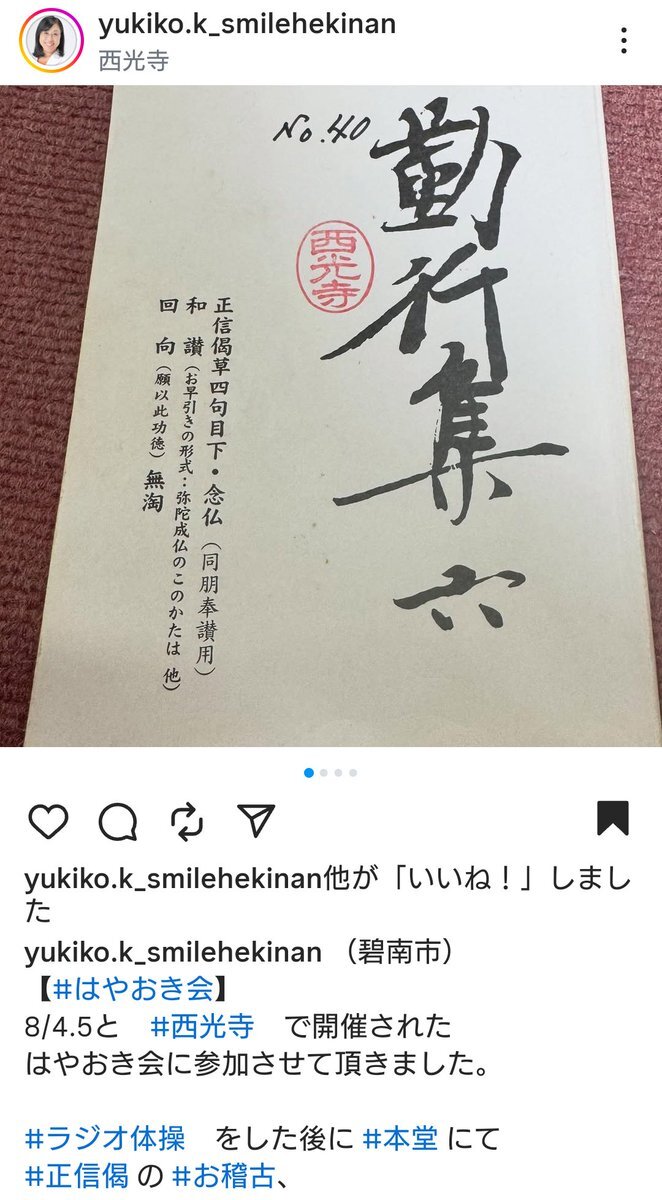 yukiko.k_smilehekinan
西光寺
No.40
勤行集 六
西光寺
正信偈草四句目下・念仏（同朋奉讃用）
和讃（お早引きの形式：弥陀成仏のこのかたは 他）
回向（願以此功徳）無淘
yukiko.k_smilehekinan他が「いいね！」しまし
た
yukiko.k_smilehekinan （碧南市）
【#はやおき会】
8/4.5と　#西光寺　で開催された
はやおき会に参加させて頂きました。
#ラジオ体操　をした後に #本堂 にて
#正信偈 の #お稽古、